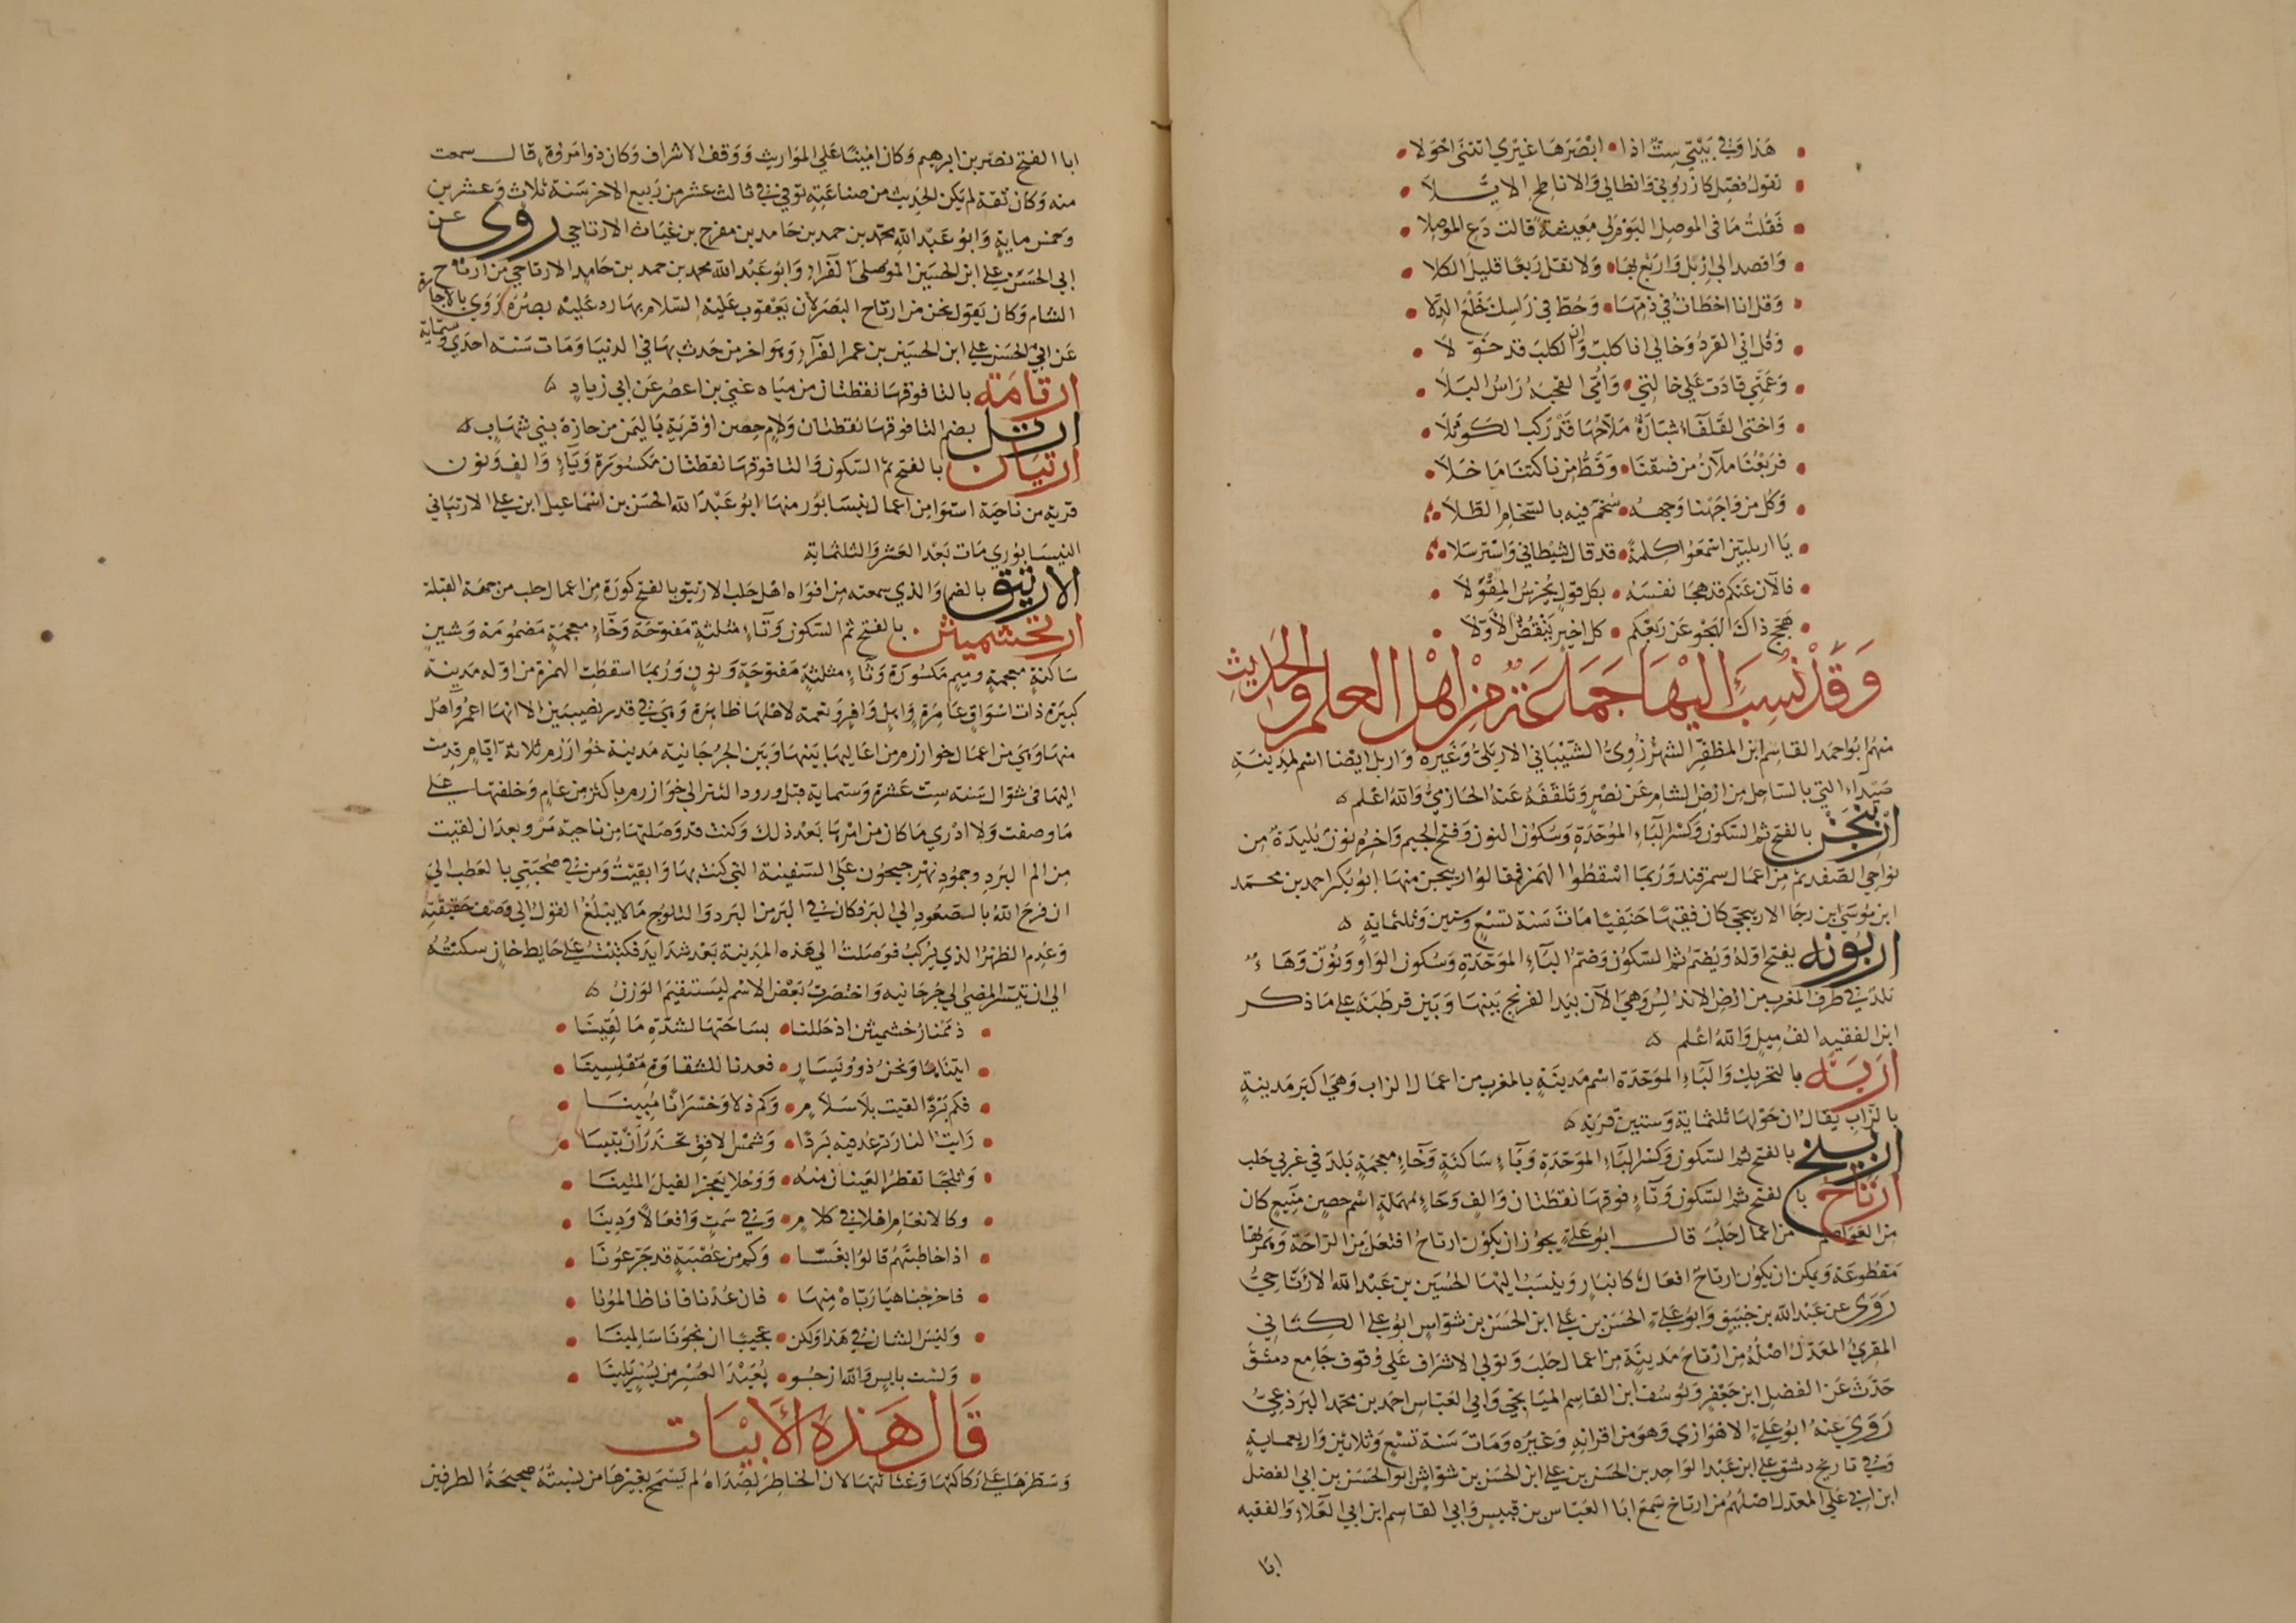 هذا وفي بيتي ست اذا • ابصرها غيري انثنى احولا
تقول فصل كازروني وانطالي والا ناطح الايلا
فقلت ما في الموصل اليوم لي معيشة قالت دع الموصلا
واقصد الى اربل واربع بها • ولا تقل ربعا قليل الكلا
وقل انا اخطات في ذمها • وحط في راسك خلع الدلا
وقل اني القرد وخالي انا كلب وان الكلب قد خولا
وعمتي قادت على خالتي • وامي القحبة راس البلا
واختي القلفاء شبارة ملاحها قد ركب الكوثلا
فربعنا ملآن من فسقنا • وقط من ناكتنا ما خلا
وكل من واجهنا وجهه • سخم فيه بالسخام الطلا
يا اربليين اسمعوا كلمة • قد قال شيطاني واسترسلا
فالآن عنكم قد هجا نفسه • بكل قول يخرس المقولا
هيج ذاك الهجو عن ربعكم • كل اخير ينقض الاولا
وقد نسب اليها جماعة من اهل العلم والحديث
منهم ابو احمد القاسم ابن المظفر الشهرزوري الشيباني الاربلي وغيره واربل ايضا اسم لمدينة
صيداء التي بالساحل من ارض الشام عن نصر وتلقفه عنه الحازمي والله اعلم
اربنجن بالفتح ثم السكون وكسر الباء الموحدة وسكون النون وفتح الجيم واخره نون بليدة من
نواحي الصغد ثم من اعمال سمرقند وربما اسقطوا الهمزة فقالوا ربنجن منها ابو بكر احمد بن محمد
ابن موسى ابن رجا الاربنجني كان فقيها حنفيا مات سنة تسع وستين وثلثماية
اربونه يفتح اوله ويضم ثم السكون وضم الباء الموحدة وسكون الواو ونون وهاء
بلد في طرف المغرب من ارض الاندلس وهي الآن بيد الفرنج بينها وبين قرطبة على ما ذكر
ابن الفقيه الف ميل والله اعلم
اربه بالتحريك والباء الموحدة اسم مدينة بالمغرب من اعمال الزاب وهي اكبر مدينة
بالزاب يقال ان حولها ثلثماية وستين قرية
اربيخ بالفتح ثم السكون وكسر الباء الموحدة وياء ساكنة وخاء معجمة بلد في غربي حلب
ارتاح بالفتح ثم السكون وتاء فوقها نقطتان والف وحاء مهملة اسم حصن منيع كان
من العواصم من اعمال حلب قال ابو علي يجوز ان يكون ارتاح افتعل من الراحة وهمزتها
مقطوعة ويمكن ان يكون ارتاح افعال كانبار وينسب اليها الحسين بن عبد الله الارتاحي
روى عن عبد الله بن خبيق وابو علي الحسن بن علي ابن الحسن بن شواس ابو علي الكتاني
المقري المعدل اصله من ارتاح مدينة من اعمال حلب وتولى الاشراف على وقوف جامع دمشق
حدث عن الفضل ابن جعفر ويوسف ابن القاسم الميانجي وابي العباس احمد بن محمد البرذعي
روى عنه ابو علي الاهوازي وهو من اقرانه وغيره ومات سنة تسع وثلاثين واربعماية
وفي تاريخ دمشق علي ابن عبد الواحد بن الحسن بن علي ابن الحسن بن شواش ابو الحسن بن ابي الفضل
ابن ابي علي المعدل اصلهم من ارتاح سمع ابا العباس بن قبيس وابي القاسم ابن ابي العلاء والفقيه
ابا
ابا الفتح نصر بن ابرهيم وكان امينا على المواريث ووقف الاشراف وكان ذوا مروة قال سمعت
منه وكان ثقة لم يكن الحديث من صناعته توفي في ثالث عشر من ربيع الاخر سنة ثلاث وعشرين
وخمس ماية وابو عبد الله محمد بن حمد بن حامد بن مفرج بن غياث الارتاحي روى عن
ابي الحسن علي ابن الحسين الموصلي الفراء وابو عبد الله محمد بن حمد بن حامد الارتاحي من ارتاح
الشام وكان يقول نحن من ارتاح البصر لان يعقوب عليه السلام بها رد عليه بصره روى بالاجازة
عن ابي الحسن علي ابن الحسين بن عمر الفراء وهو اخر من حدث بها في الدنيا ومات سنة احدى وستماية
ارتامة بالتا فوقها نقطتان من مياه غني بن اعصر عن ابي زياد
ارتل بضم التا فوقها نقطتان ولام حصن او قرية باليمن من حازة بني شهاب
ارتيان بالفتح ثم السكون والتا فوقها نقطتان مكسورة وياء والف ونون
قرية من ناحية استوا من اعمال نيسابور منها ابو عبد الله الحسن بن اسماعيل ابن علي الارتياني
النيسابوري مات بعد العشر والثلثماية
الارتيق بالضم والذي سمعته من افواه اهل حلب الارتيق بالفتح كورة من اعمال حلب من جهة القبلة
ارثخشميثن بالفتح ثم السكون وثاء مثلثة مفتوحة وخاء معجمة مضمومة وشين
ساكنة معجمة وميم مكسورة وثاء مثلثة مفتوحة ونون وربما اسقطت الهمزة من اوله مدينة
كبيرة ذات اسواق عامرة واهل وافر ونعمة لاهلها ظاهرة وهي في قدر نصيبين الا انها اعمر واهل
منها وهي من اعمال خوارزم من اعاليها بينها وبين الجرجانية مدينة خوارزم ثلاثة ايام قدمت
اليها في شوال سنة ست عشرة وستماية قبل ورود التتر الى خوارزم باكثر من عام وخلفتها على
ما وصفت ولا ادري ما كان من امرها بعد ذلك وكنت قد وصلتها من ناحية مرو بعد ان لقيت
من الم البرد وجمود نهر جيحون على السفينة التي كنت بها وايقنت ومن في صحبتي بالعطب الى
ان فرح الله بالصعود الى البر فكان في البر من البرد والثلوج ما لا يبلغ القول الى وصف حقيقته
وعدم الظهر الذي يركب فوصلت الى هذه المدينة بعد شدايد فكتبت على حايط خان سكنته
الى ان تيسر المضي الى جرجانيه واختصرت بعض الاسم ليستقيم الوزن
ذممنا رخشميثن اذ حللنا • بساحتها لشدة ما لقينا
اتيناها ونحن ذوو يسار • فعدنا للشقاوة مفلسينا
فكم بردا لقيت بلا سلام • وكم ذلا وخسرانا مبينا
رايت النار ترعد فيه بردا • وشمس الافق تحذر ان تبينا
وثلجا تقطر العينان منه • ووحلا يعجز الفيل المتينا
وكالانعام اهلا في كلام • وفي سمت وافعالا ودينا
اذا خاطبتهم قالوا بفسا • وكم من غصة قد جرعونا
فاخرجنا هيا رباه منها • فان عدنا فانا ظالمونا
وليس الشان في هذا ولكن • عجيبا ان نجونا سالمينا
ولست بايس والله ارجو • بعيد العسر من يسر يلينا
قال هذه الابيات
وسطرها على ركاكتها وغثاثتها لان الخاطر لصداه لم يسمح بغيرها من نسبته صحيحة الطرفين